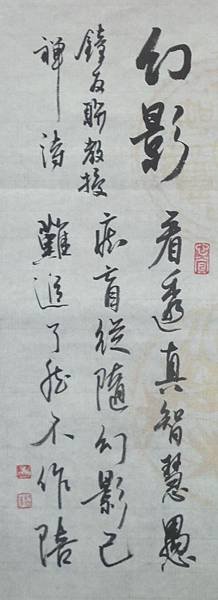 幻影
鐘友聯教授
禪詩
看透真智慧愚
痴盲從隨幻影已
難追了然不作陪